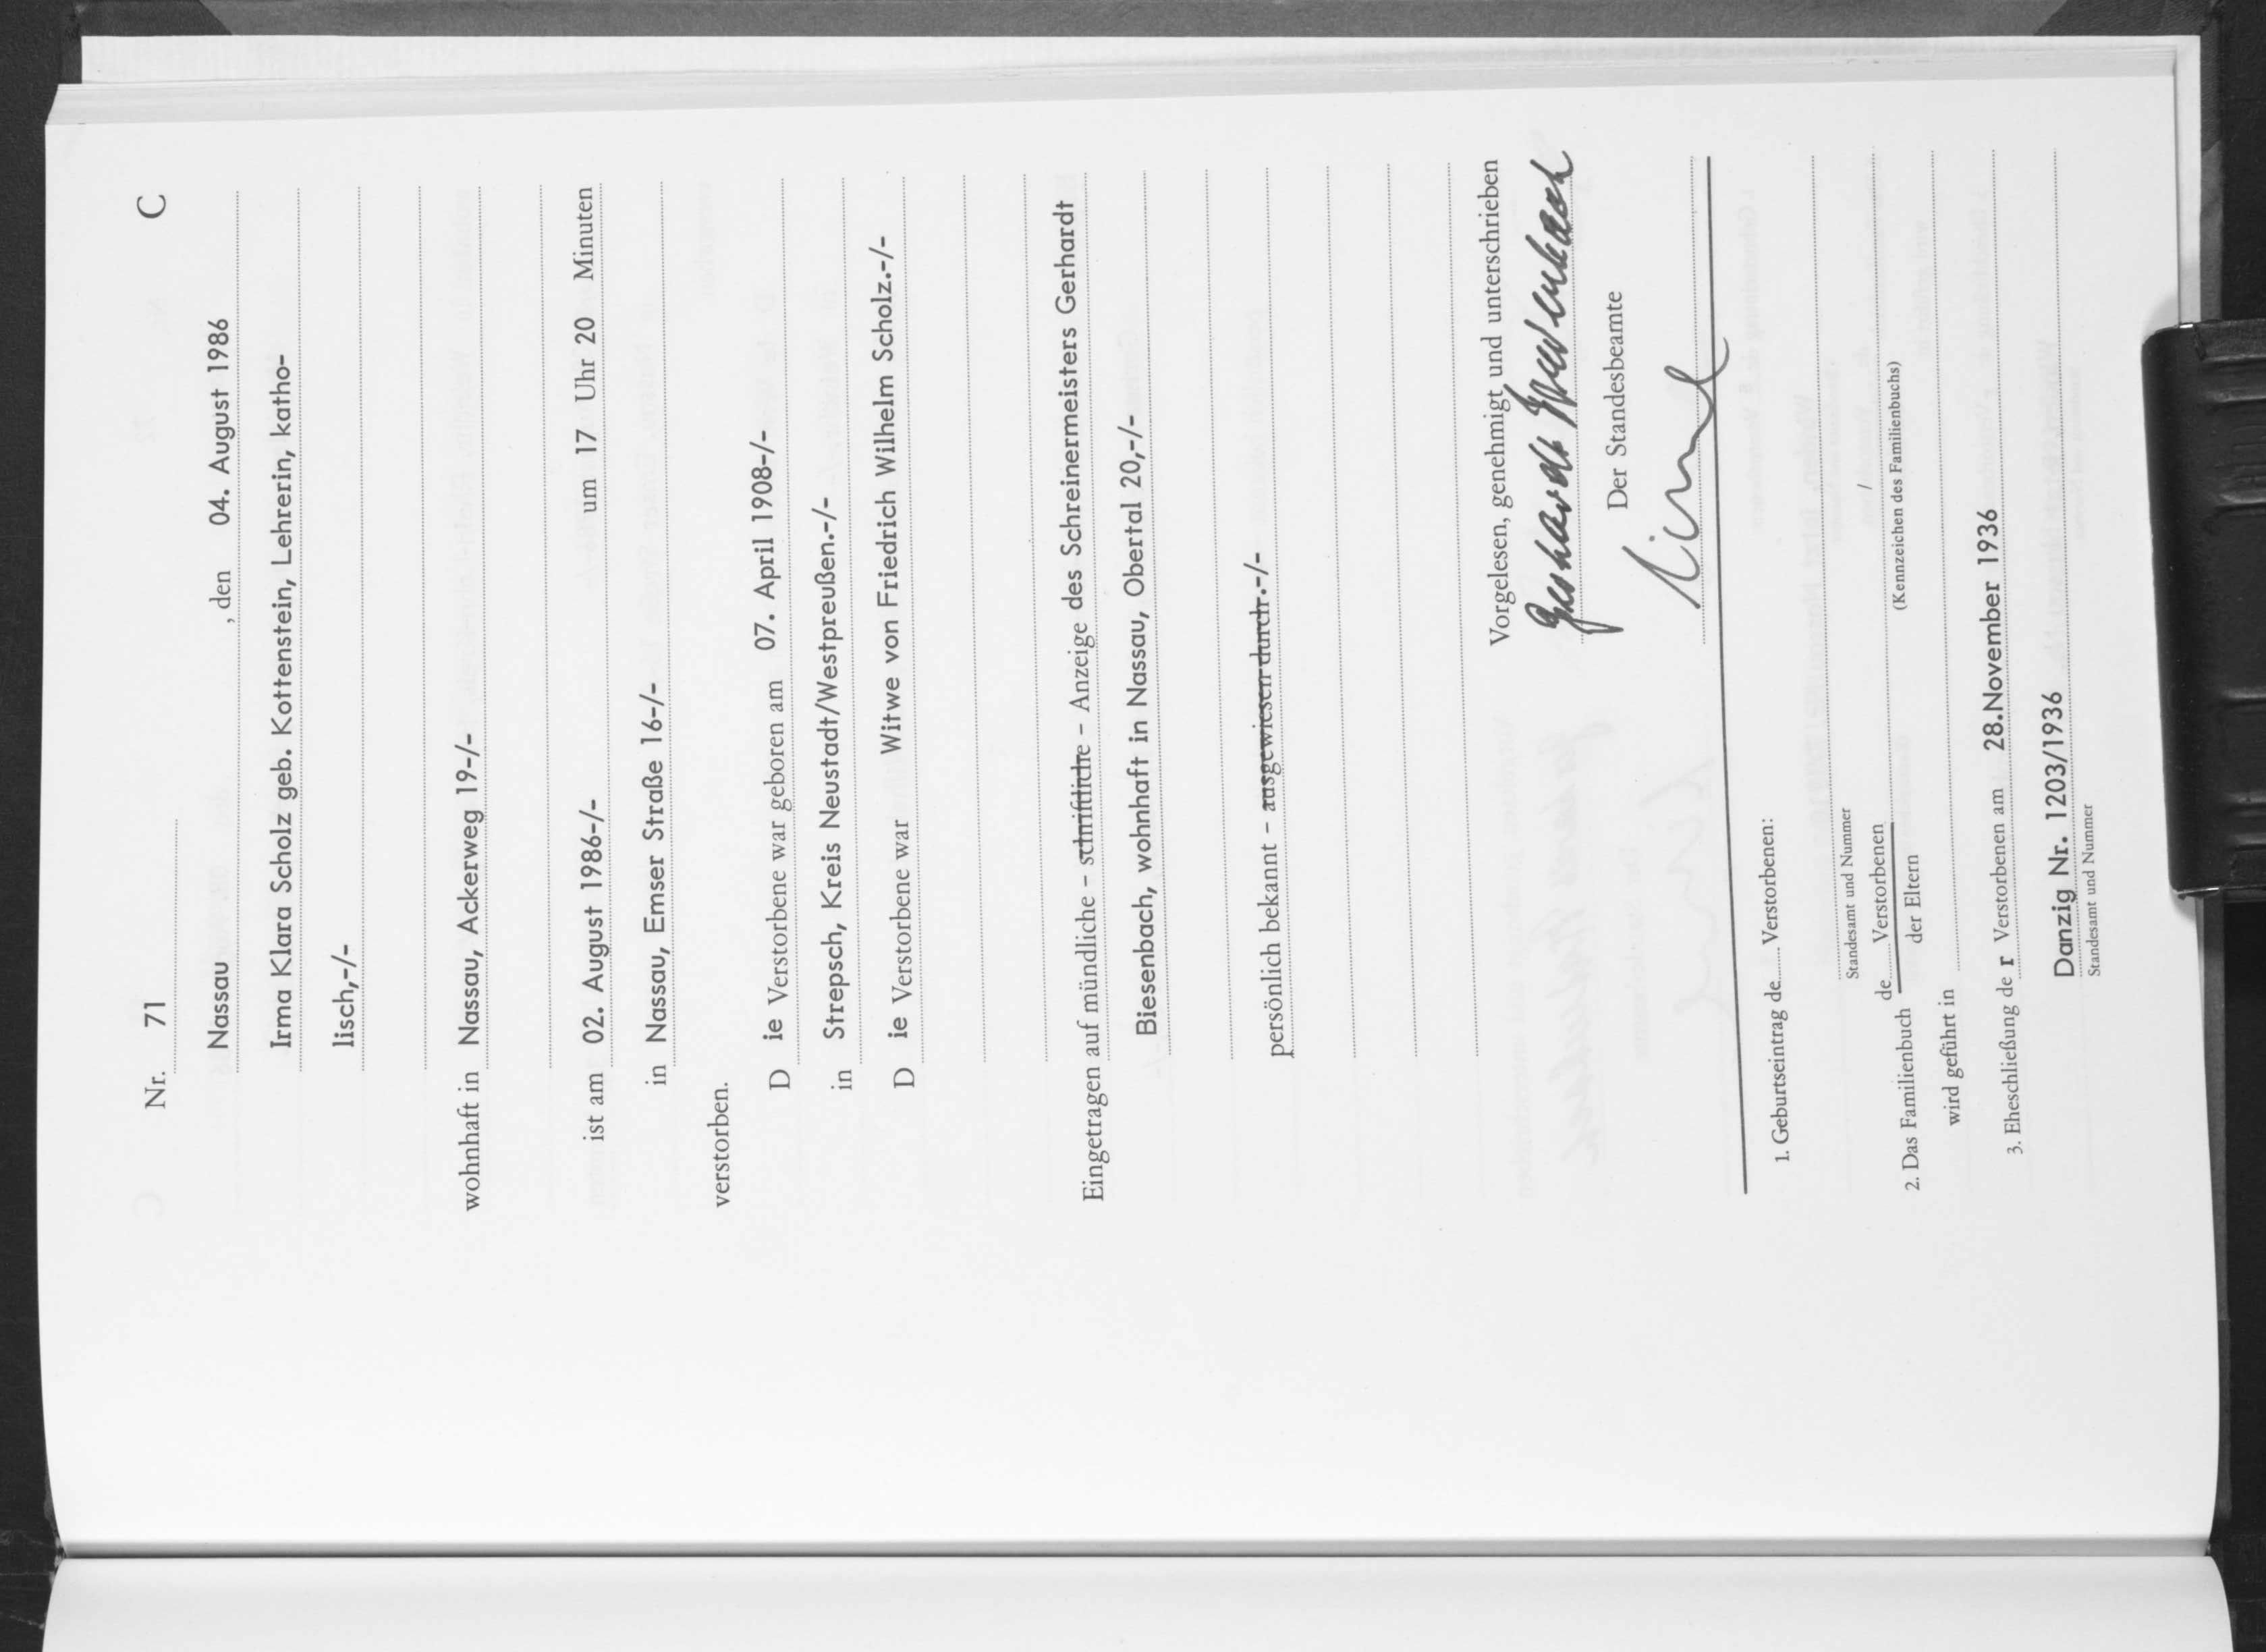 Nr. 71 C
Nassau , den 04. August 1986
Irma Klara Scholz geb. Kottenstein, Lehrerin, katho-
lisch,-/-
wohnhaft in Nassau, Ackerweg 19-/-
ist am 02. August 1986-/- um 17 Uhr 20 Minuten
in Nassau, Emser Straße 16-/-
verstorben.
D ie Verstorbene war geboren am 07. April 1908-/-
in Strepsch, Kreis Neustadt/Westpreußen.-/-
D ie Verstorbene war Witwe von Friedrich Wilhelm Scholz.-/-
Eingetragen auf mündliche - schriftliche - Anzeige des Schreinermeisters Gerhardt
Biesenbach, wohnhaft in Nassau, Obertal 20,-/-
persönlich bekannt - ausgewiesen durch.-/-
Vorgelesen, genehmigt und unterschrieben
Gerhardt Biesenbach
Der Standesbeamte
1. Geburtseintrag de..... Verstorbenen:
Standesamt und Nummer
2. Das Familienbuch de..... Verstorbenen /
der Eltern (Kennzeichen des Familienbuchs)
wird geführt in
3. Eheschließung de r Verstorbenen am 28.November 1936
Danzig Nr. 1203/1936
Standesamt und Nummer